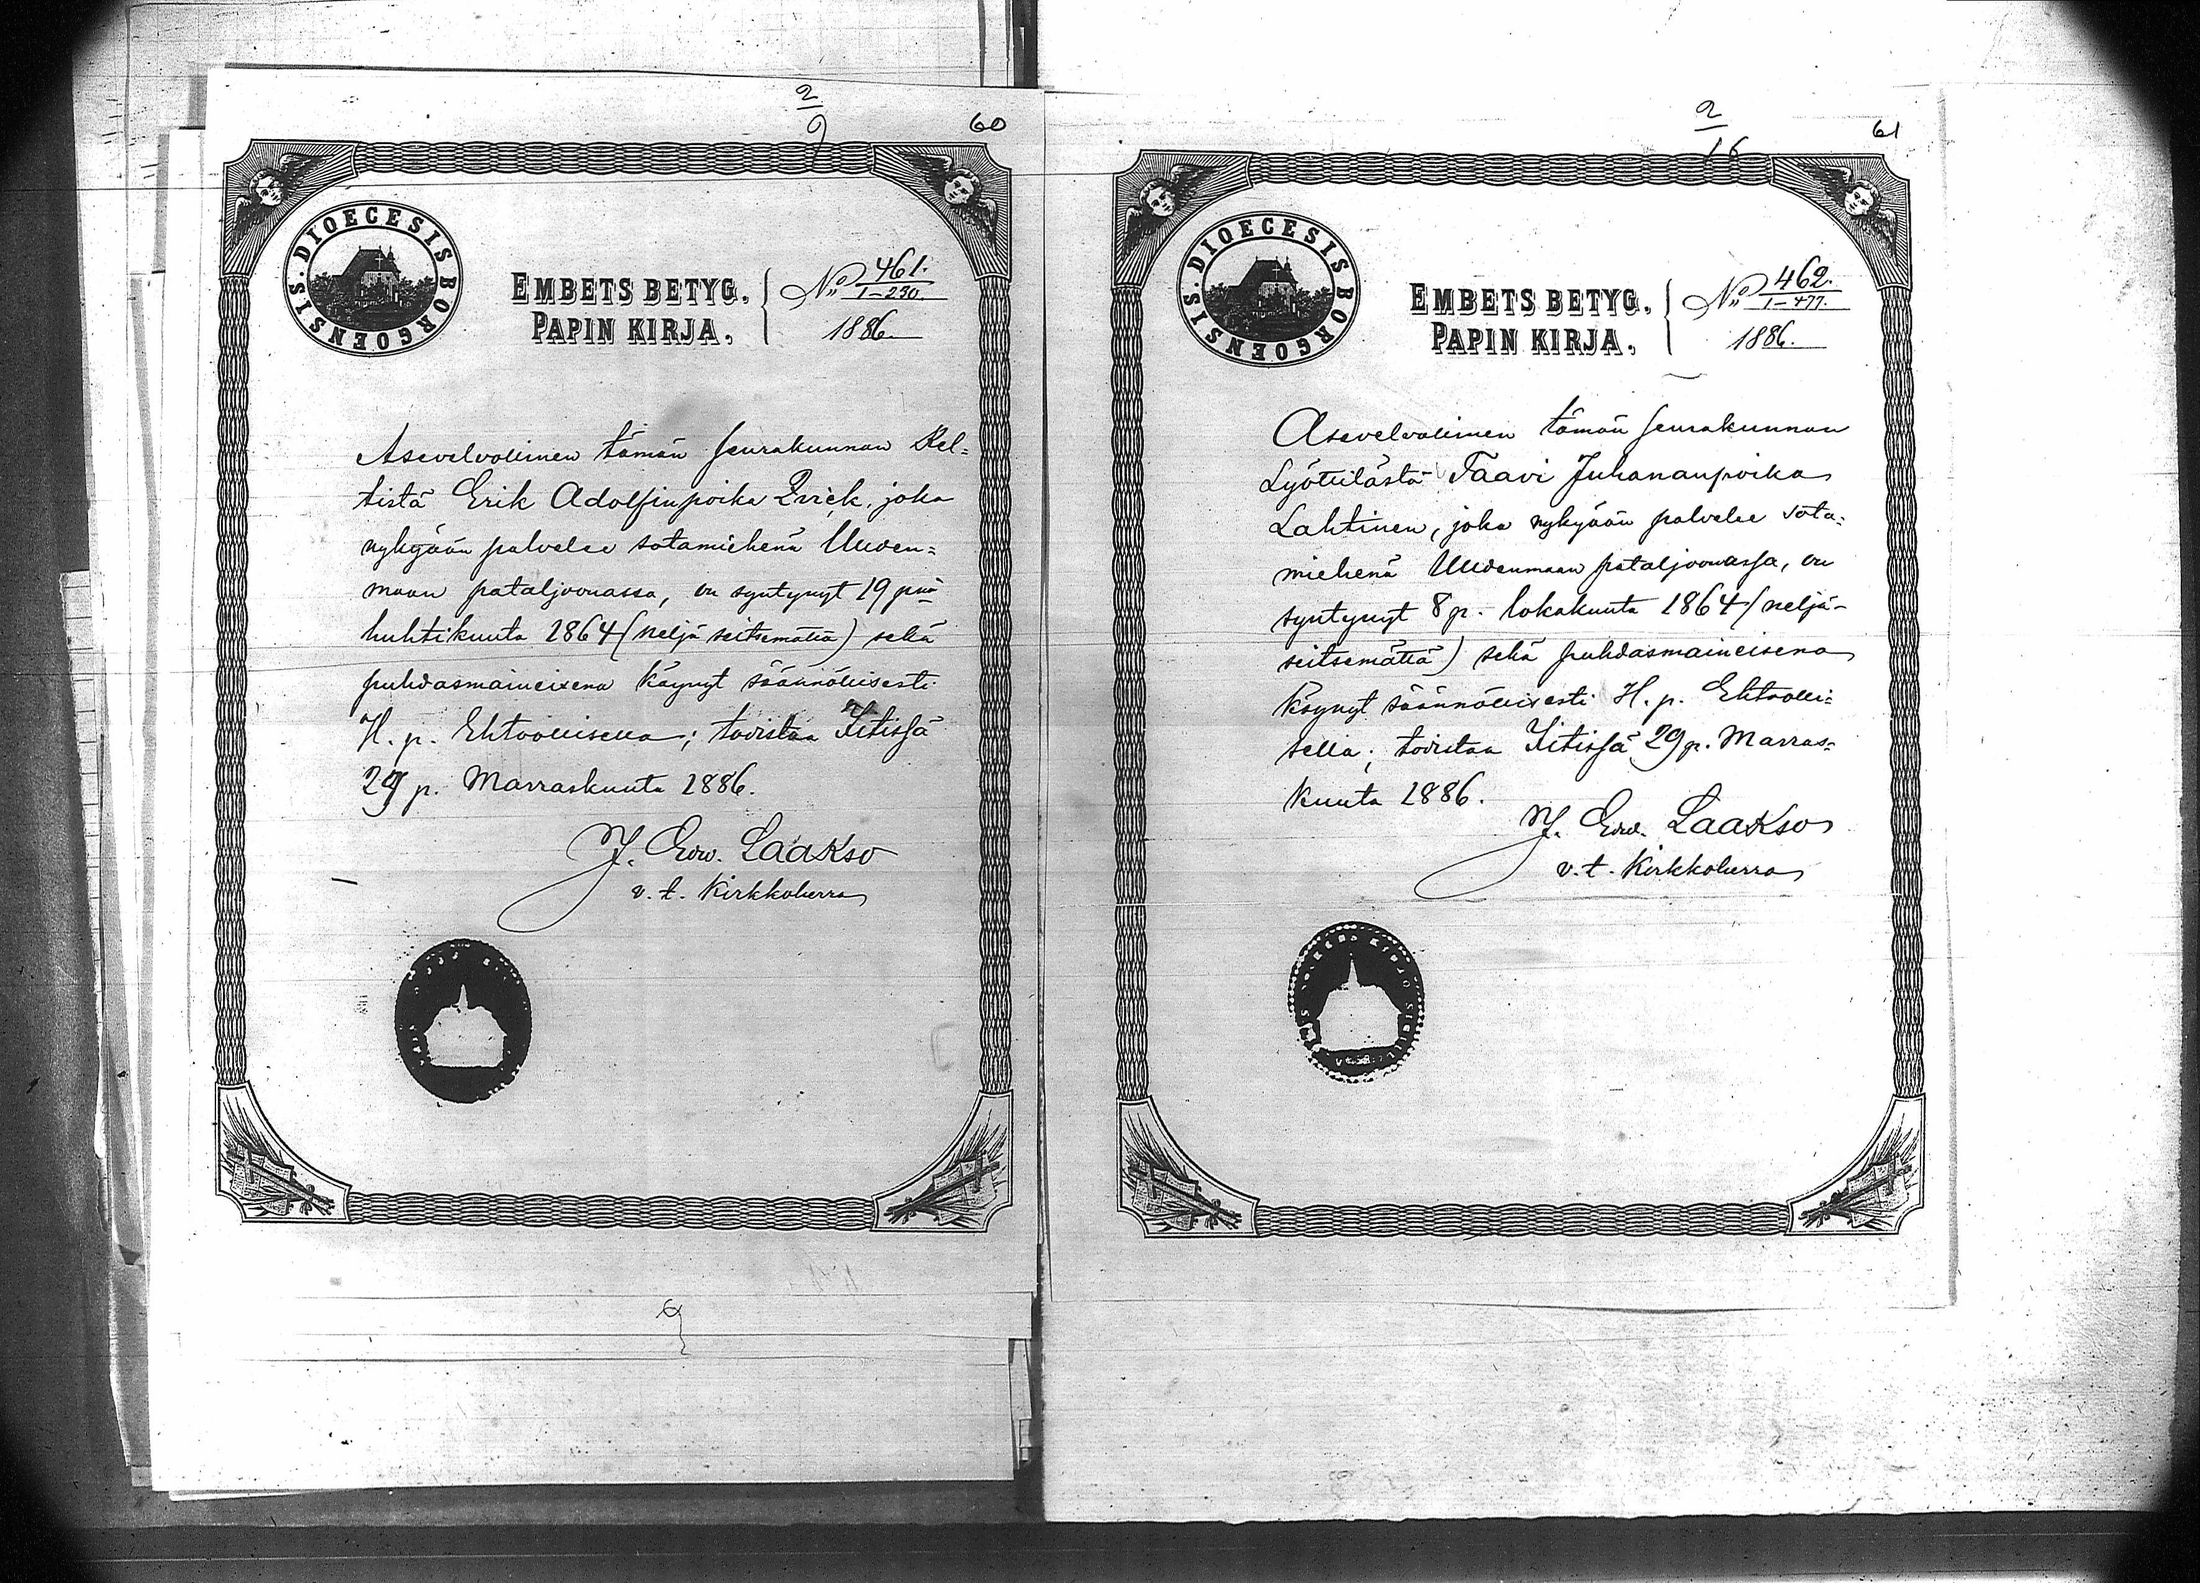 2/9
60
DIOECESIS BORGOENSIS.
EMBETS BETYG.
PAPIN KIRJA.
No 461.
I–230.
1886.
Asevelvollinen tämän seurakunnan Kel=
tistä Erik Adolfinpoika Qvick, joka
nykyään palvelee sotamiehenä Uuden=
maan pataljoonassa, on syntynyt 19 p:nä
huhtikuuta 1864 (neljä seitsemättä) sekä
puhdasmaineisena käynyt säännöllisesti
H. p. Ehtoollisella; todistaa Iitissä
29 p. Marraskuuta 1886.
J. Edw. Laakso
v. t. Kirkkoherra
2/16
61
DIOECESIS BORGOENSIS.
EMBETS BETYG.
PAPIN KIRJA.
No 462.
I–477.
1886.
Asevelvollinen tämän seurakunnan
Lyöttilästä Taavi Juhonanpoika
Lahtinen, joka nykyään palvelee sota=
miehenä Uudenmaan pataljoonassa, on
syntynyt 8 p. lokakuuta 1864 (neljä-
seitsemättä) sekä puhdasmaineisena
käynyt säännöllisesti H. p. Ehtoolli=
sella; todistaa Iitissä 29 p. Marras=
kuuta 1886.
J. Edw. Laakso
v. t. Kirkkoherra